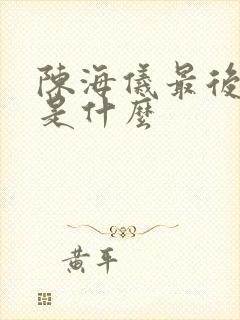 陳海儀最後
是什麼
黃平